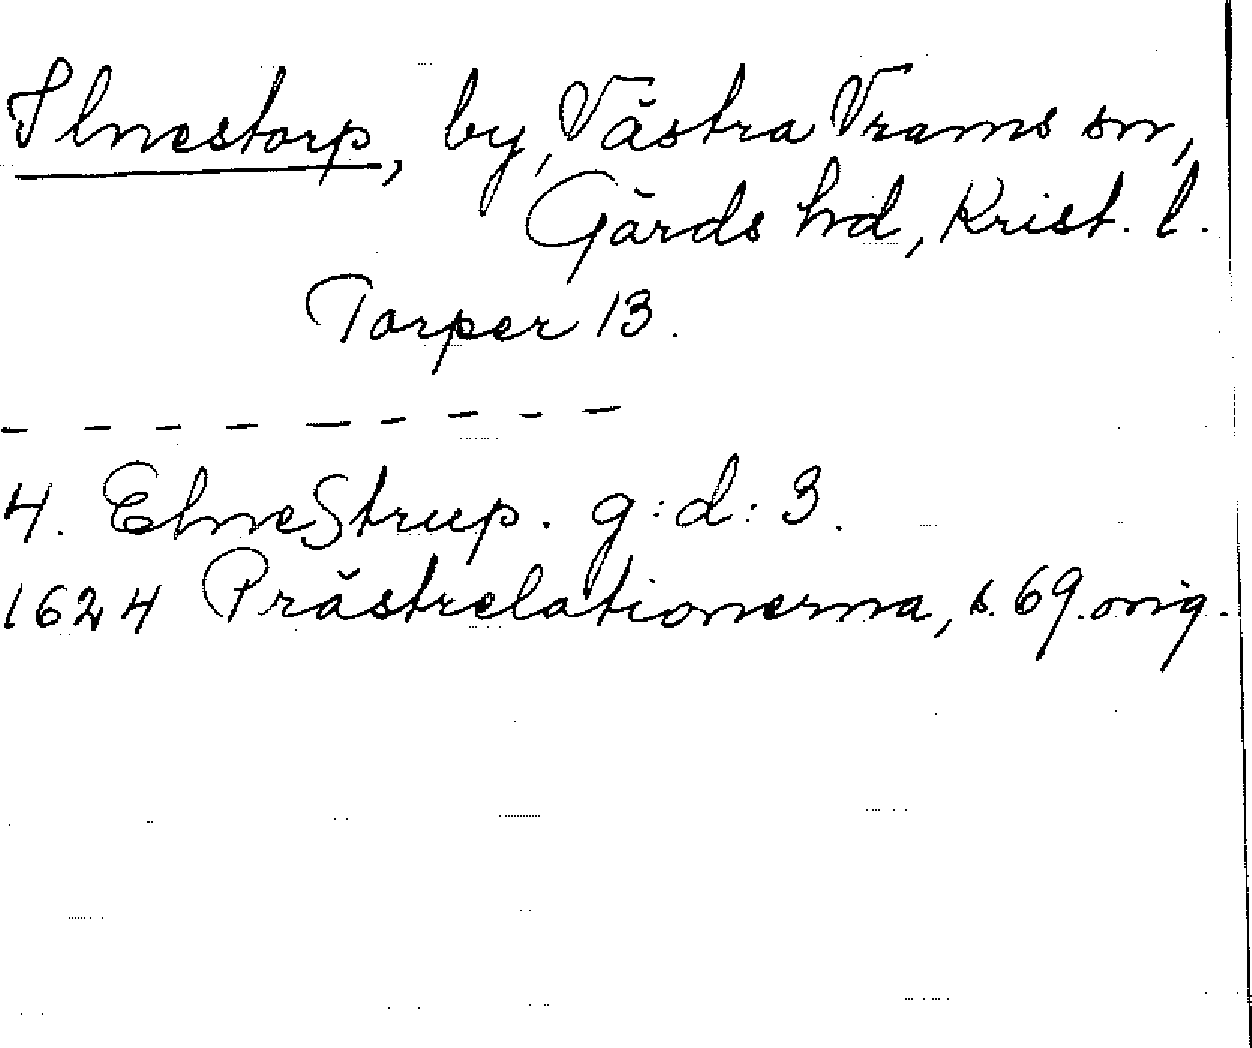 Ilnestorp, by, Västra Vrams sn,
Gärds hd, Krist. l.
Torper 13.
- - - - - - - - -
4. Elnestrup. g:d: 3.
1624 Prästrelationerna, s. 69. orig.